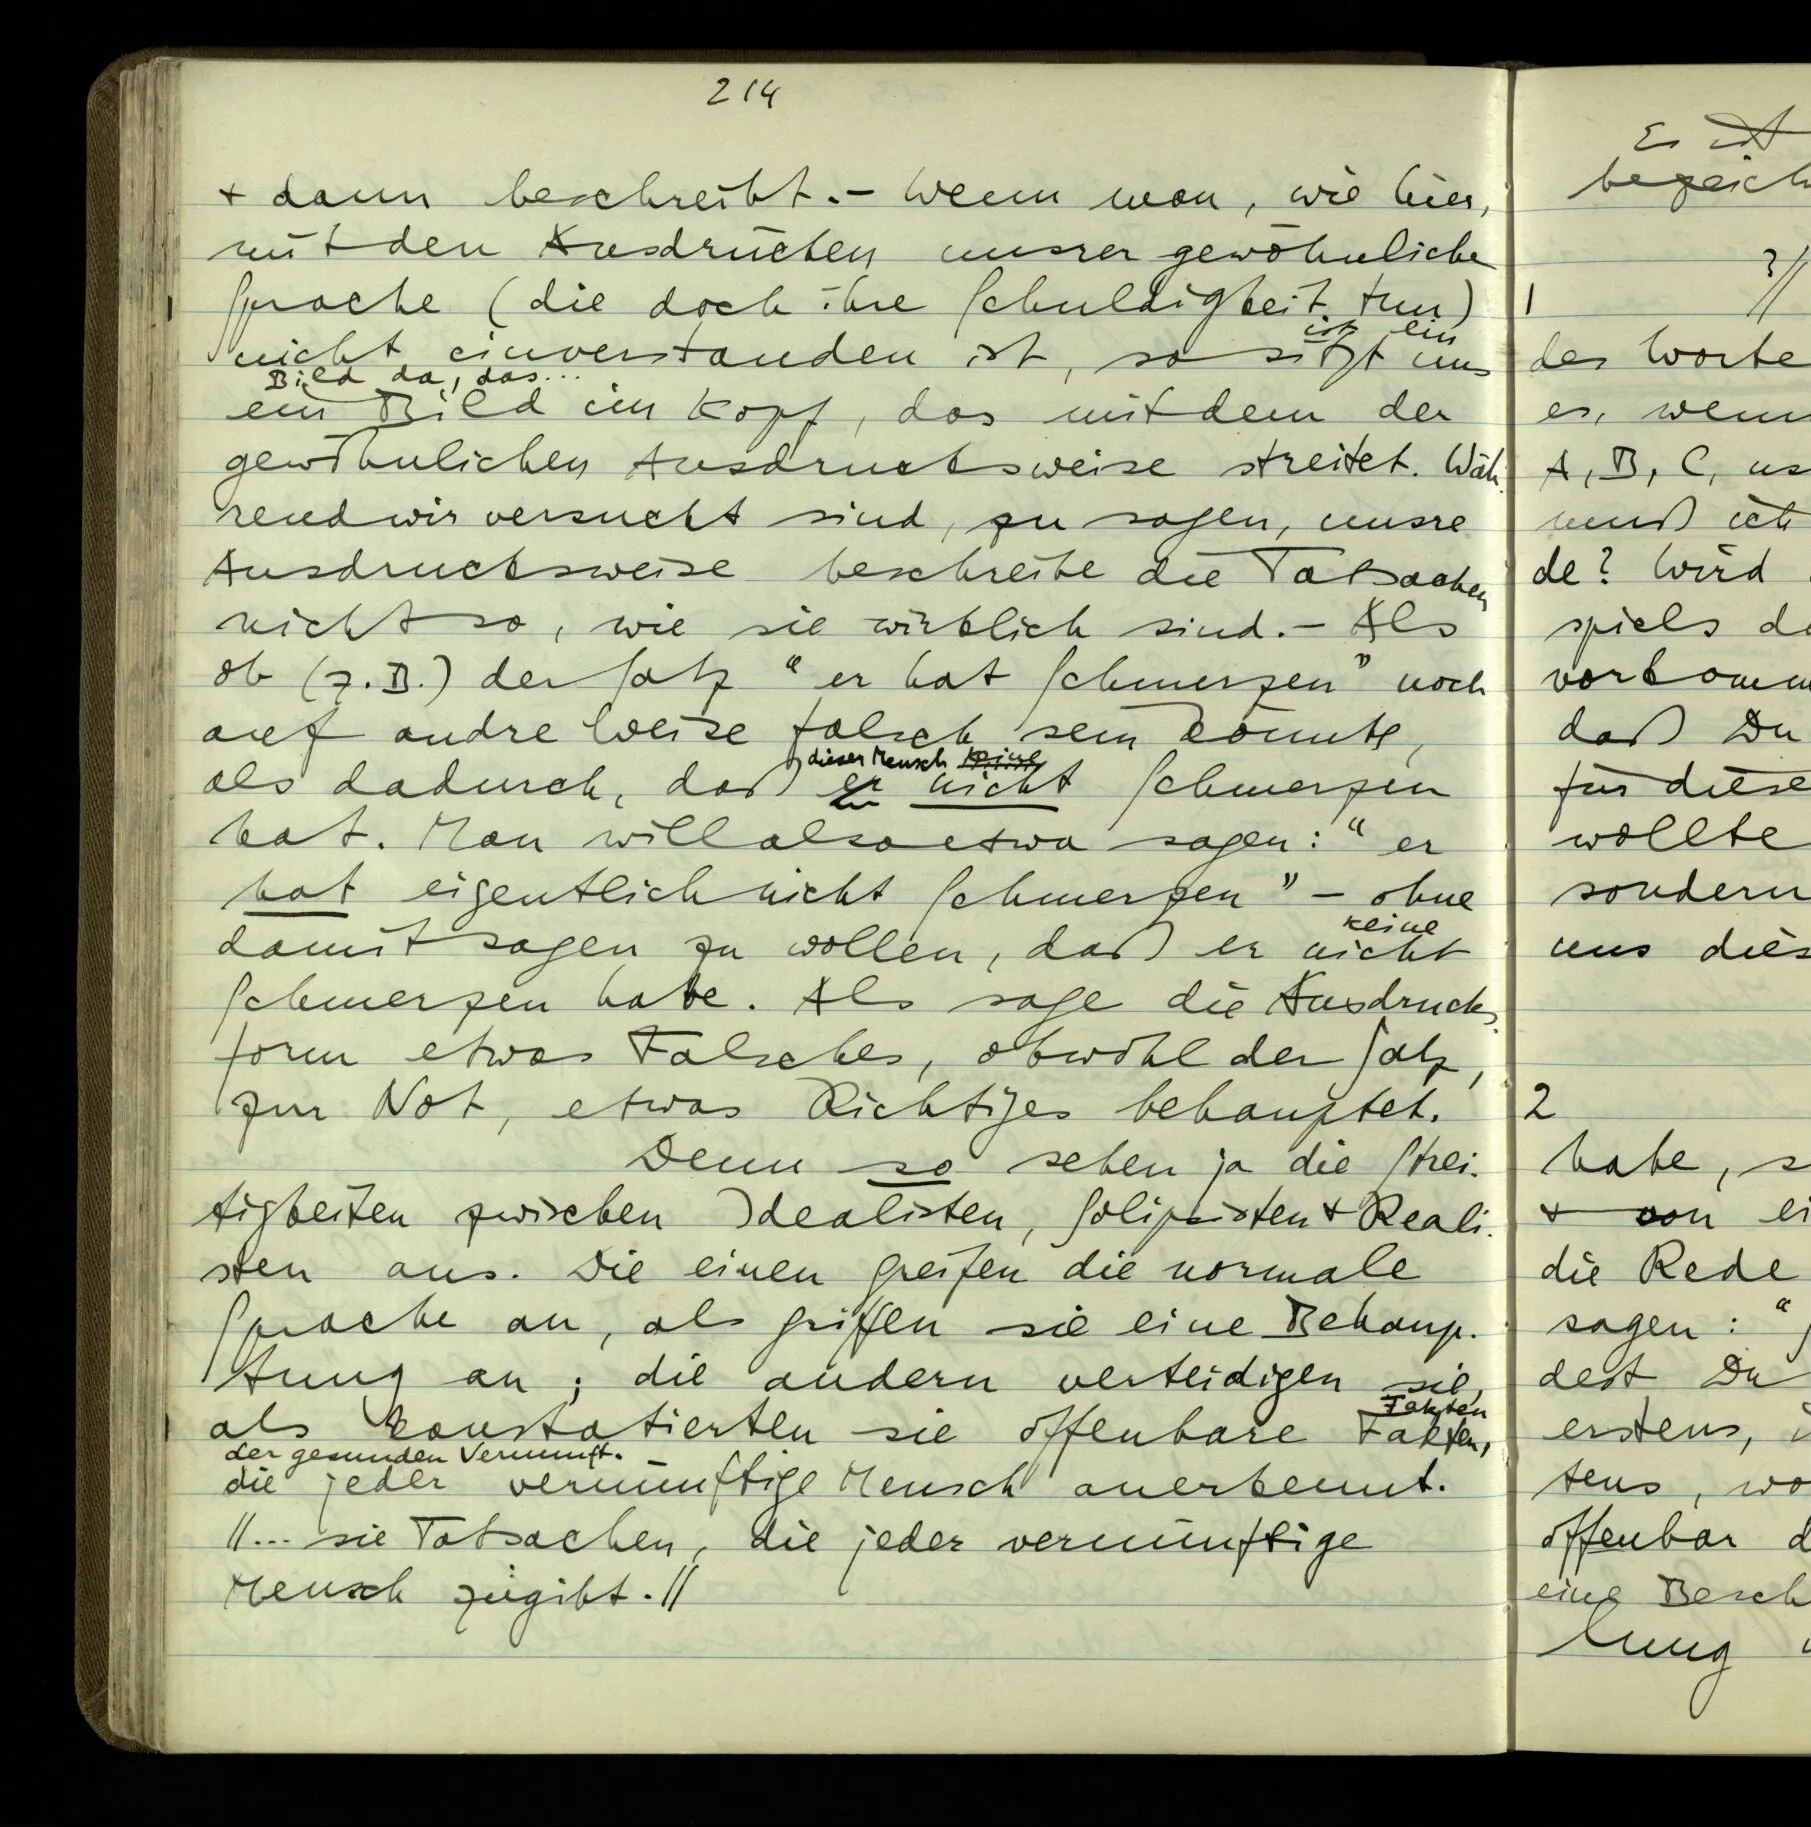 214
+ dann beschreibt. – Wenn man, wie hier,
mit den Ausdrücken unsrer gewöhnliche
Sprache (die doch ihre Schuldigkeit tun)
ist ein
nicht einverstanden ist, so sitzt uns
Bild da, das...
ein Bild im Kopf, das mit dem der
gewöhnlichen Ausdrucksweise streitet. Wäh-
rend wir versucht sind, zu sagen, unsre
Ausdrucksweise beschreibe die Tatsachen
nicht so, wie sie wirklich sind. – Als
ob (z.B.) der Satz “er hat Schmerzen” noch
auf andre Weise falsch sein könnte,
dieser Mensch keine
als dadurch, daß er nicht Schmerzen
hat. Man will also etwa sagen: “er
hat eigentlich nicht Schmerzen” – ohne
keine
damit sagen zu wollen, daß er nicht
Schmerzen habe. Als sage die Ausdrucks-
form etwas Falsches, obwohl der Satz,
zur Not, etwas Richtiges behauptet.
Denn so sehen ja die Strei-
tigkeiten zwischen Idealisten, Solipsisten + Reali-
sten aus. Die einen greifen die normale
Sprache an, als griffen sie eine Behaup-
tung an; die andern verteidigen sie,
Fakten
als konstatierten sie offenbare Fakten,
der gesunden Vernunft.
die jeder vernünftige Mensch anerkennt.
//... sie Tatsachen, die jeder vernünftige
Mensch zugibt.//
Es ist
bezeich
?//
1
des Worte
es, wenn
A, B, C, us
muß ich
de? Wird
spiels da
vorkomm
daß Du
für diese
wollte
sondern
uns dies
2
habe, s
+ von ei
die Rede
sagen: “
dest Du
erstens, i
tens, wo
offenbar d
eine Besch
lung